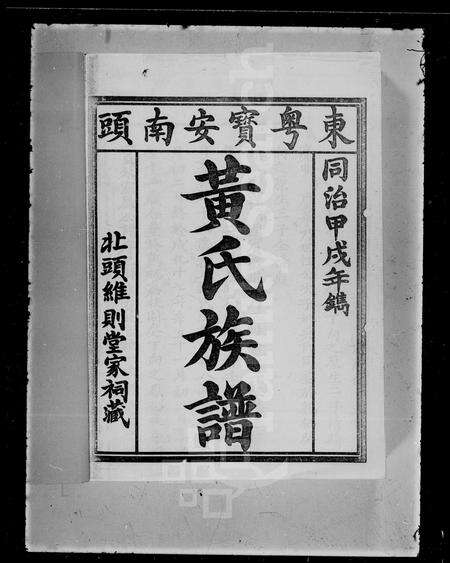 東粤寶安南頭
同治甲戌年鐫
黃氏族譜
北頭維則堂家祠藏